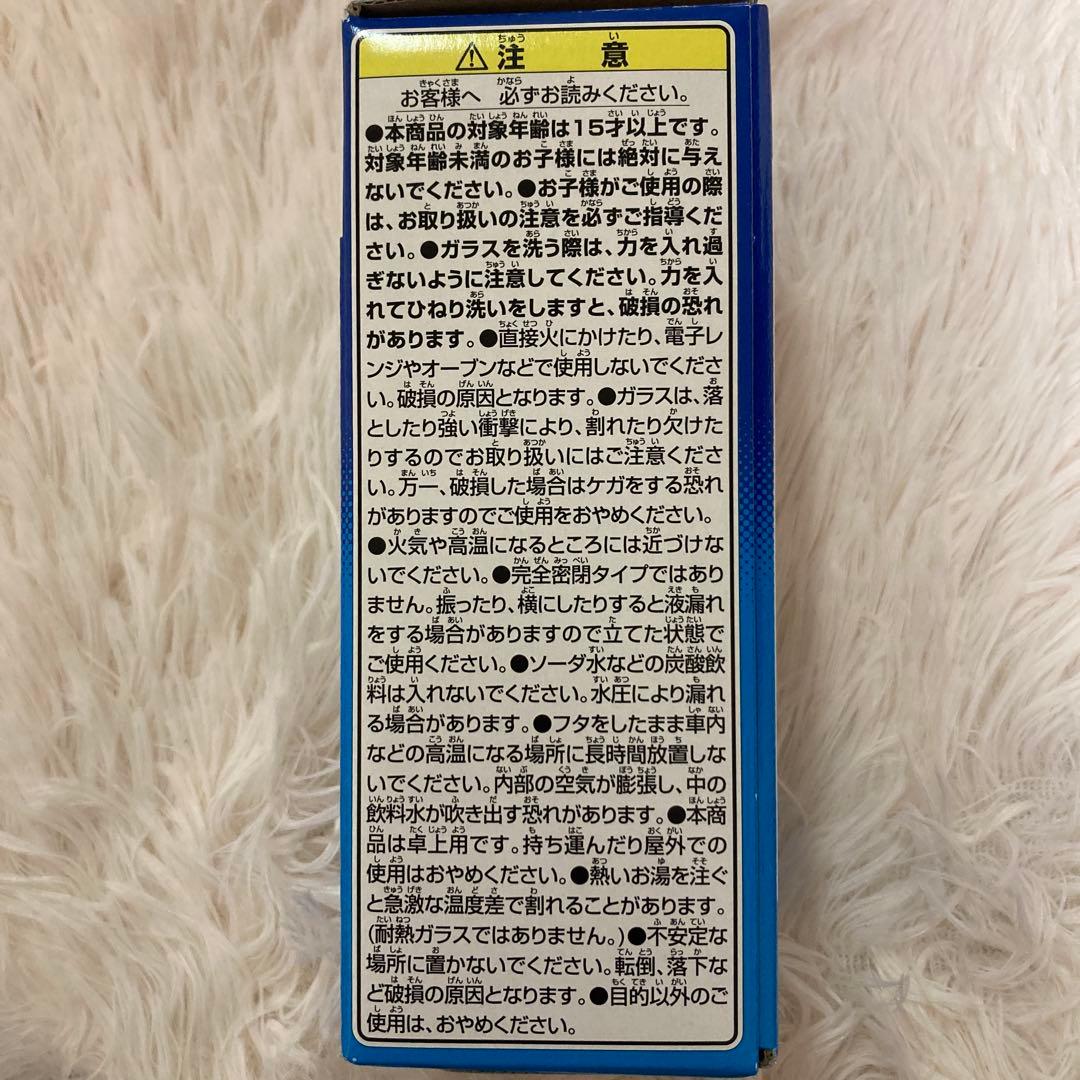 ⚠注意
お客様へ 必ずお読みください。
●本商品の対象年齢は15才以上です。
対象年齢未満のお子様には絶対に与え
ないでください。●お子様がご使用の際
は、お取り扱いの注意を必ずご指導くだ
さい。●ガラスを洗う際は、力を入れ過
ぎないように注意してください。力を入
れてひねり洗いをしますと、破損の恐れ
があります。●直接火にかけたり、電子レ
ンジやオーブンなどで使用しないでくださ
い。破損の原因となります。●ガラスは、落
としたり強い衝撃により、割れたり欠けた
りするのでお取り扱いにはご注意くださ
い。万一、破損した場合はケガをする恐れ
がありますのでご使用をおやめください。
●火気や高温になるところには近づけな
いでください。●完全密閉タイプではあり
ません。振ったり、横にしたりすると液漏れ
をする場合がありますので立てた状態で
ご使用ください。●ソーダ水などの炭酸飲
料は入れないでください。水圧により漏れ
る場合があります。●フタをしたまま車内
などの高温になる場所に長時間放置しな
いでください。内部の空気が膨張し、中の
飲料水が吹き出す恐れがあります。●本商
品は卓上用です。持ち運んだり屋外での
使用はおやめください。●熱いお湯を注ぐ
と急激な温度差で割れることがあります。
(耐熱ガラスではありません。)●不安定な
場所に置かないでください。転倒、落下な
ど破損の原因となります。●目的以外のご
使用は、おやめください。